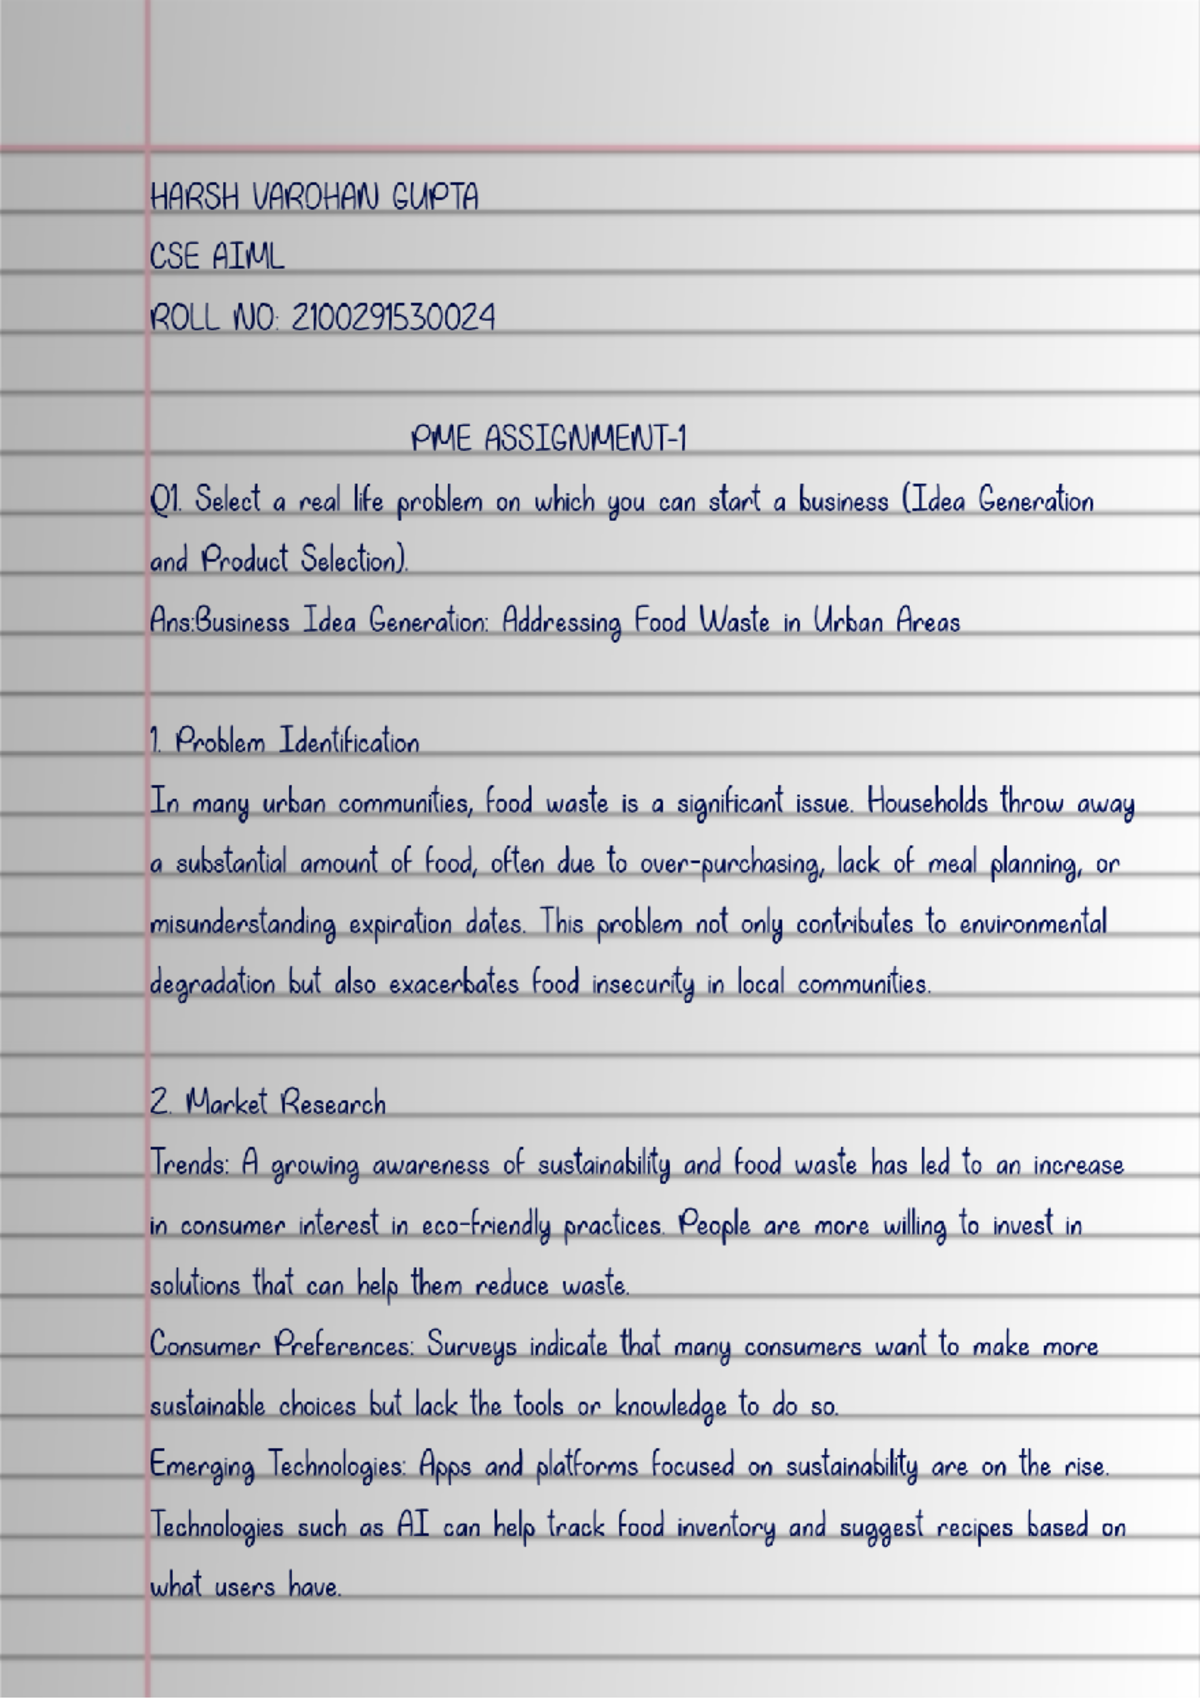 HARSH VARDHAN GUPTA
CSE AIML
ROLL NO: 2100291530024
PME ASSIGNMENT-1
Q1. Select a real life problem on which you can start a business (Idea Generation
and Product Selection).
Ans:Business Idea Generation: Addressing Food Waste in Urban Areas
1. Problem Identification
In many urban communities, food waste is a significant issue. Households throw away
a substantial amount of food, often due to over-purchasing, lack of meal planning, or
misunderstanding expiration dates. This problem not only contributes to environmental
degradation but also exacerbates food insecurity in local communities.
2. Market Research
Trends: A growing awareness of sustainability and food waste has led to an increase
in consumer interest in eco-friendly practices. People are more willing to invest in
solutions that can help them reduce waste.
Consumer Preferences: Surveys indicate that many consumers want to make more
sustainable choices but lack the tools or knowledge to do so.
Emerging Technologies: Apps and platforms focused on sustainability are on the rise.
Technologies such as AI can help track food inventory and suggest recipes based on
what users have.